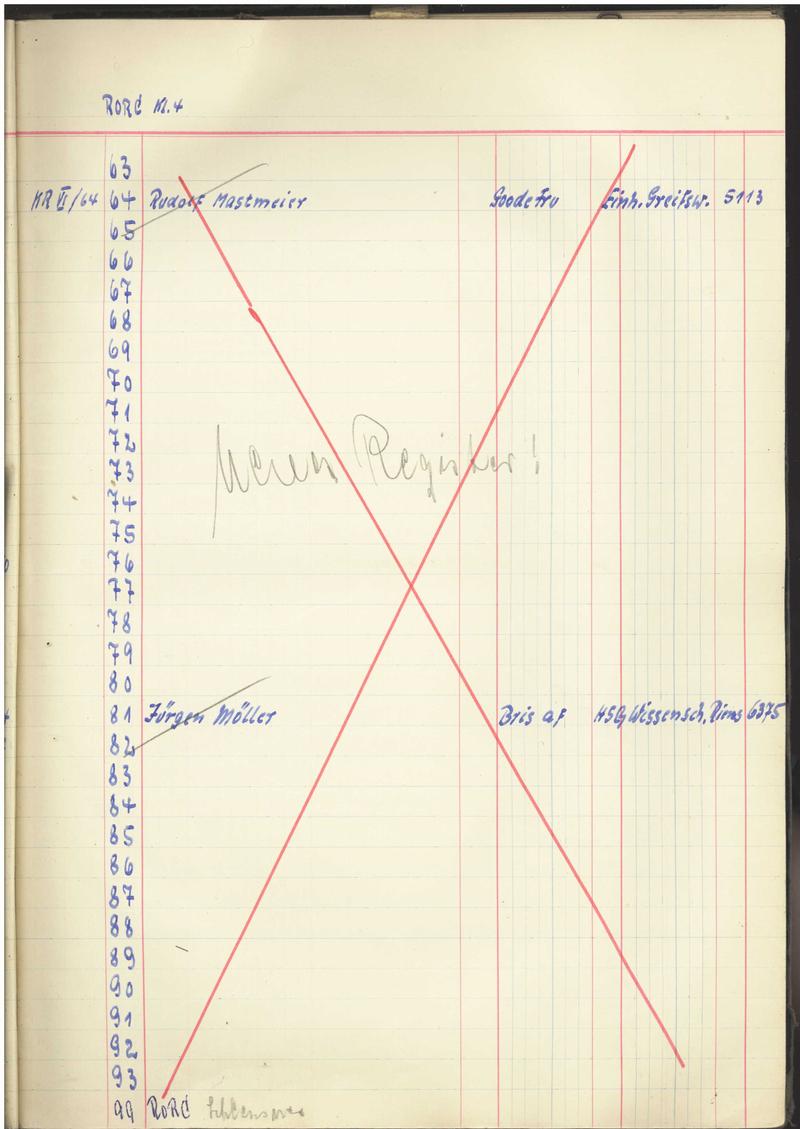 RORC Kl. 4
63
KR VI/64 64 Rudolf Mastmeier Goode Fru Einh. Greifsw. 5113
65
66
67
68
69
70
71
72
73
Neues Register!
74
75
76
77
78
79
80
81 Jürgen Möller Bris af HSG Wissensch. 6375
82
83
84
85
86
87
88
89
90
91
92
93
99 RORC